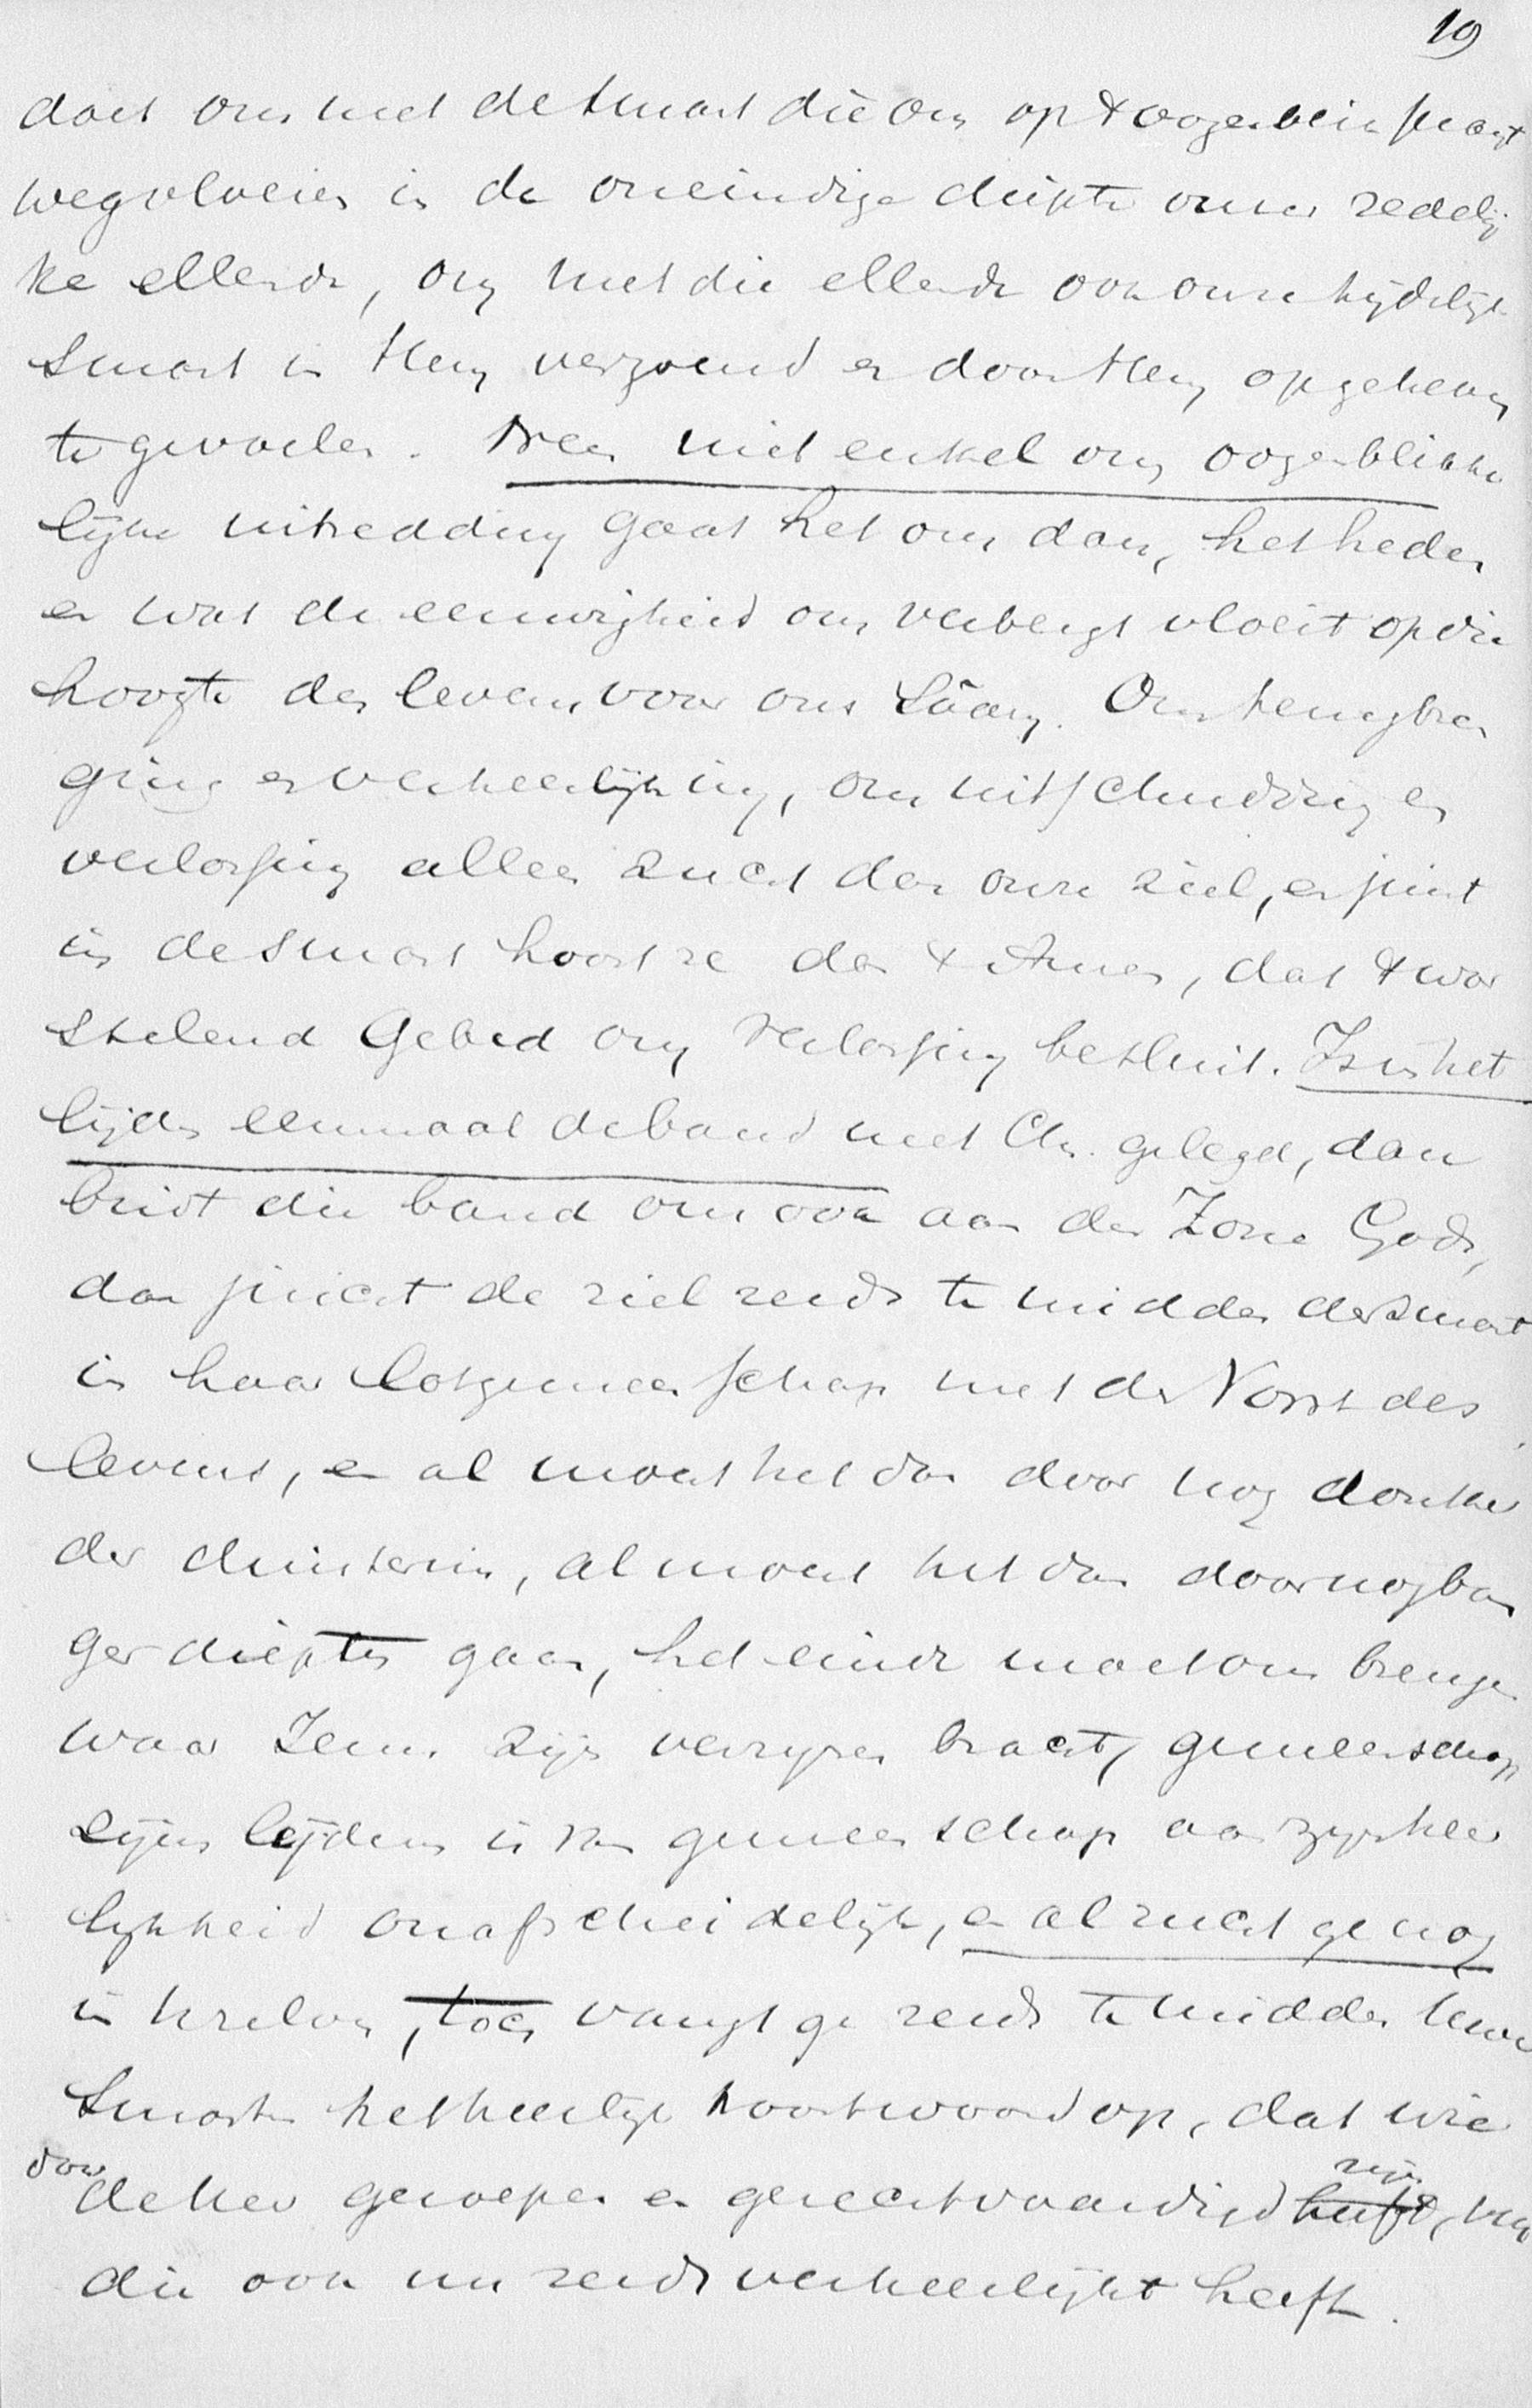 19
doet ons met de smart die ons op 't oogenblik prangt
wegvloeien in de oneindige diepte onzer zedelij
ke ellende, om met die ellende ook onze tijdelijke
smart in Hem verzoend en door Hem opgeheven
te gevoelen. Neen niet enkel om oogenblikke
lijke uitredding gaat het ons dan, het heden
en wat de eeuwigheid ons verbergt vloeit op die
hoogte des levens voor ons saam. Om terugbren
ging en verheerlijking, om uitschudding en
verlossing alleen zucht dan onze ziel, en juist
in de smart hoort ze dan 't Amen, dat 't wor
stelend Gebed om verlossing besluit. Is in het
lijden eenmaal de band met Chr. gelegd, dan
bindt die band ons ook aan den Zone Gods,
dan juicht de ziel reeds te midden der smart
in haar lotgemeenschap met den Vorst des
levens, en al moest het dan door nog donker
der duisternis, al moest het dan door nog ban
ger diepten gaan, het einde moet ons brengen
waar Jezus zijn verrijzen bracht, gemeenschap
zijns lijdens is van gemeenschap aan zijn heer
lijkheid onafscheidelijk, en al zucht ge nog
in tranen, toch vangt ge reeds te midden uwer
smarten het heerlijk troostwoord op, dat wie
door
den Heer geroepen en gerechtvaardigd heeft zijn, Hij
die ook nu reeds verheerlijkt heeft.